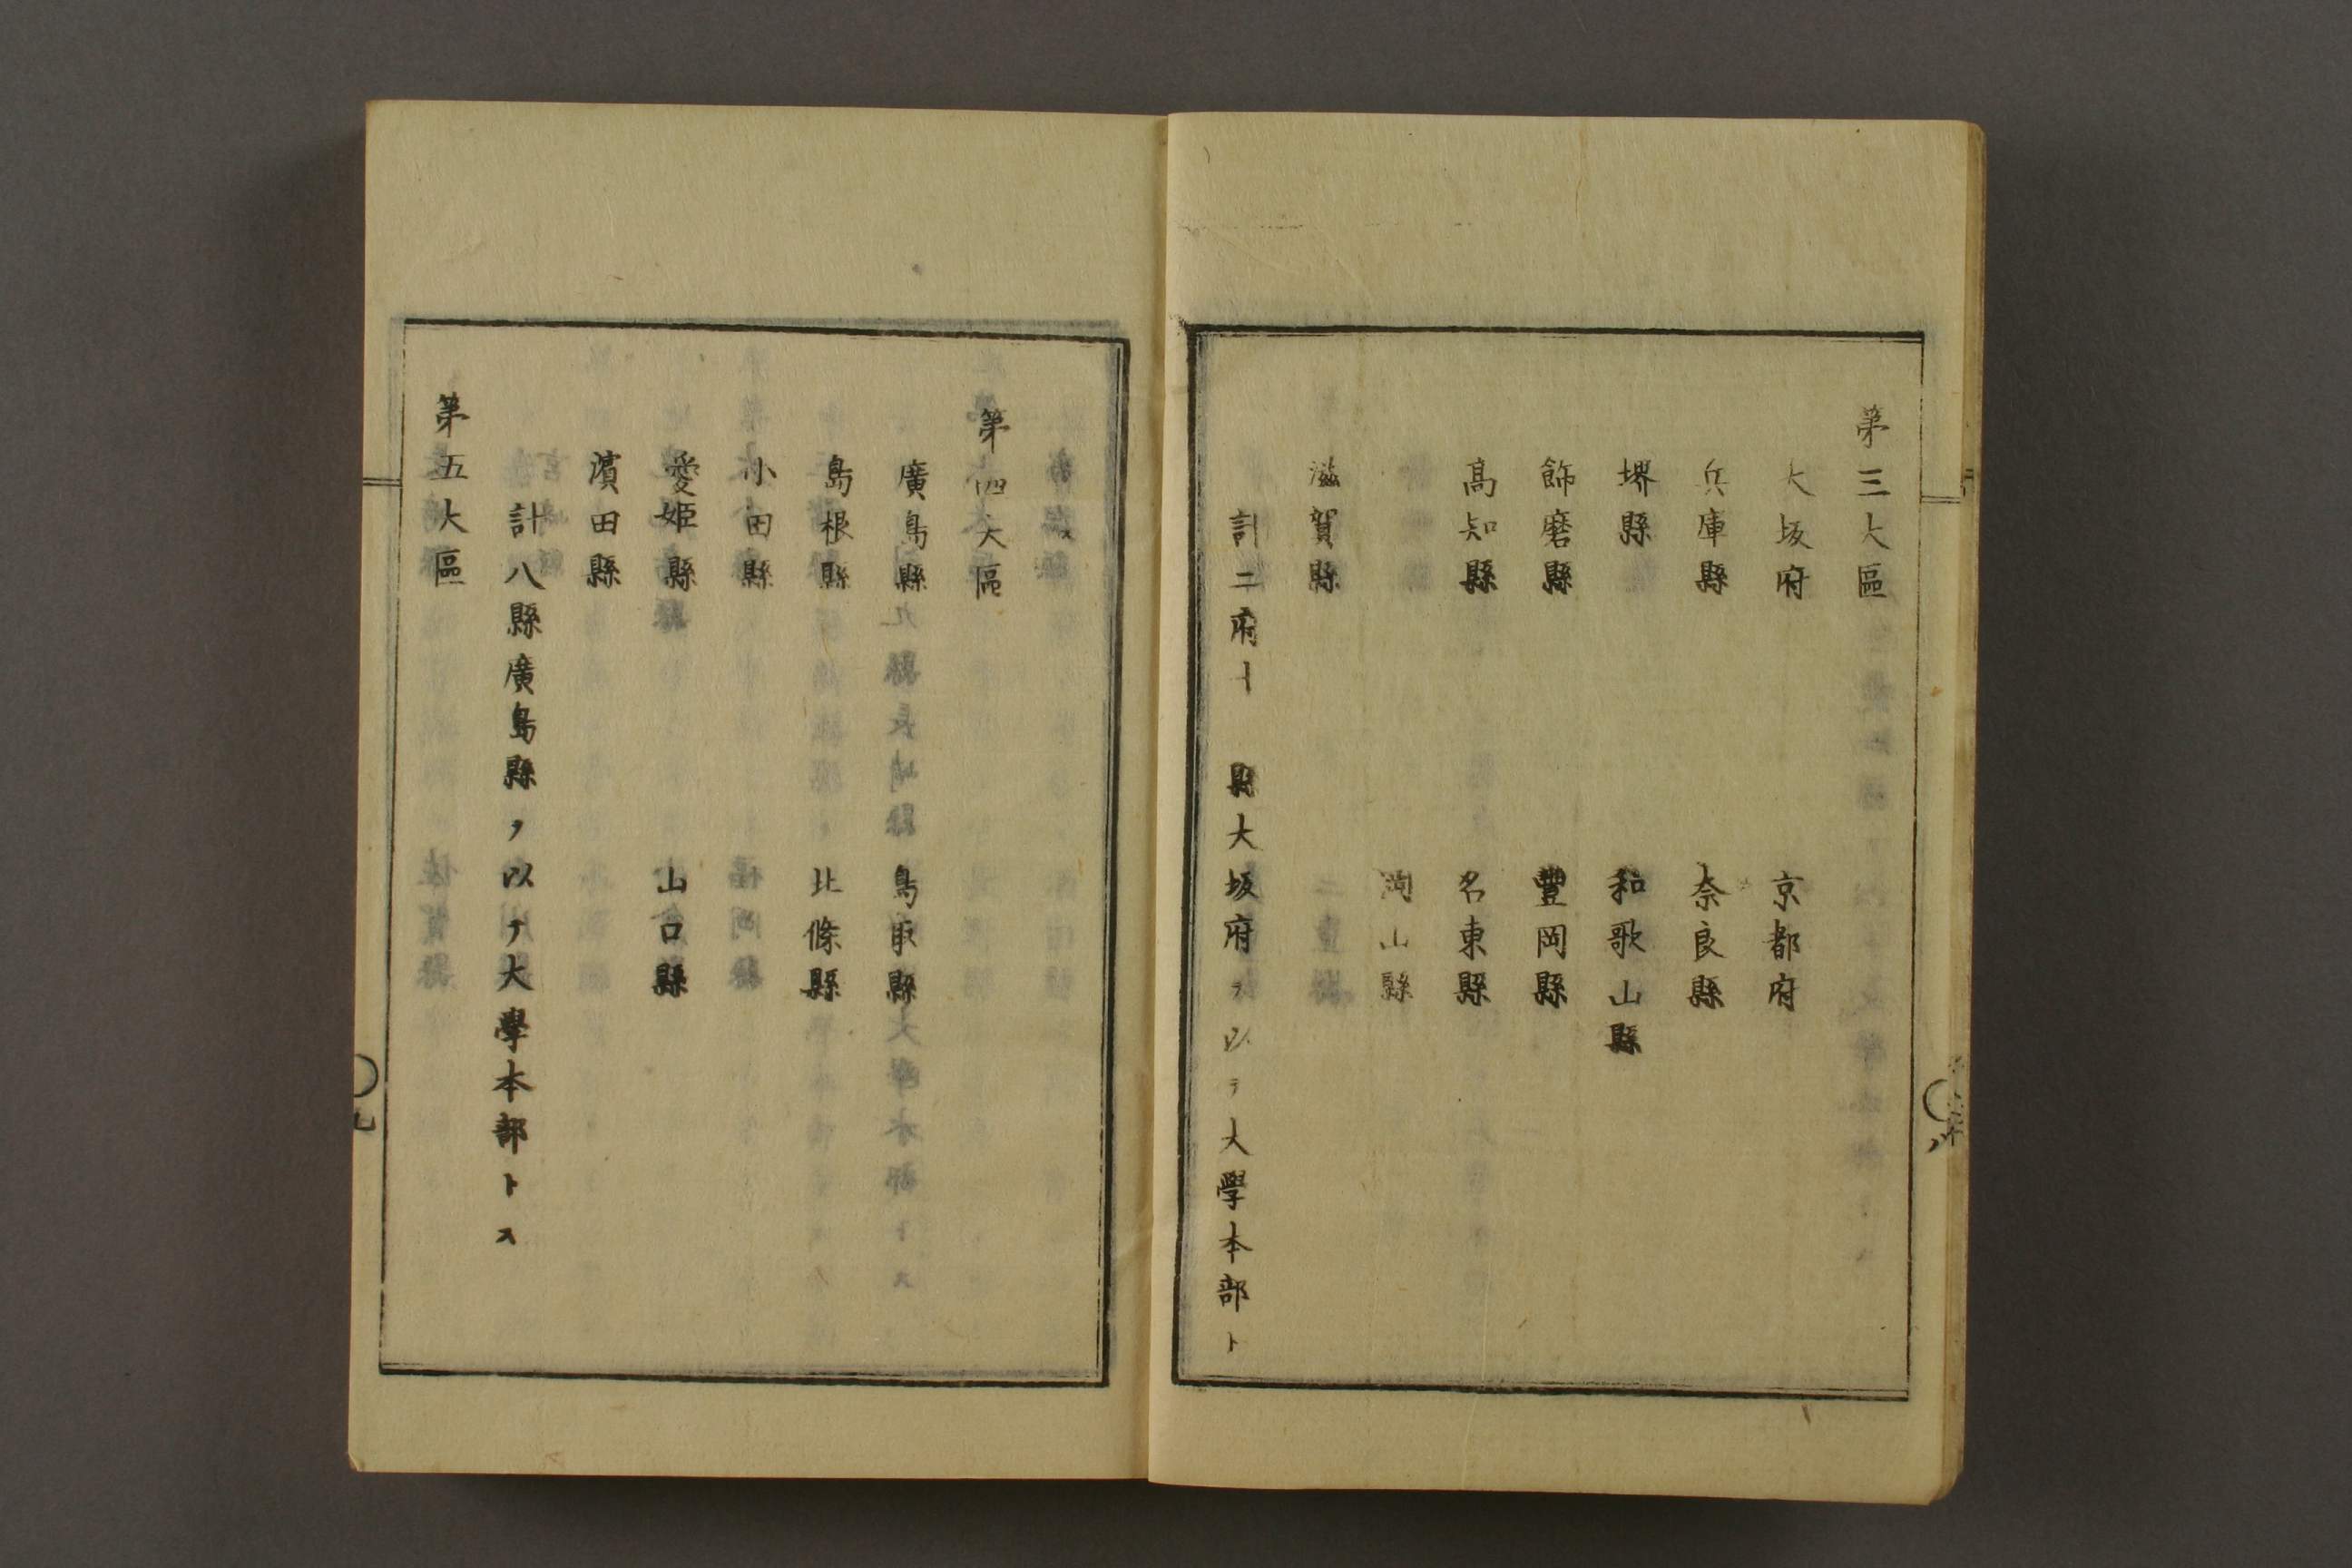 第三大區
大坂府　京都府
兵庫縣　奈良縣
堺縣　和歌山縣
飾磨縣　豐岡縣
高知縣　名東縣
岡山縣
滋賀縣
計二府十　縣大坂府ヲ以テ大學本部ト
八
第四大區
廣島縣　鳥取縣
島根縣　北條縣
小田縣
愛姫縣　山口縣
濱田縣
計八縣廣島縣ヲ以テ大學本部トス
第五大區
九